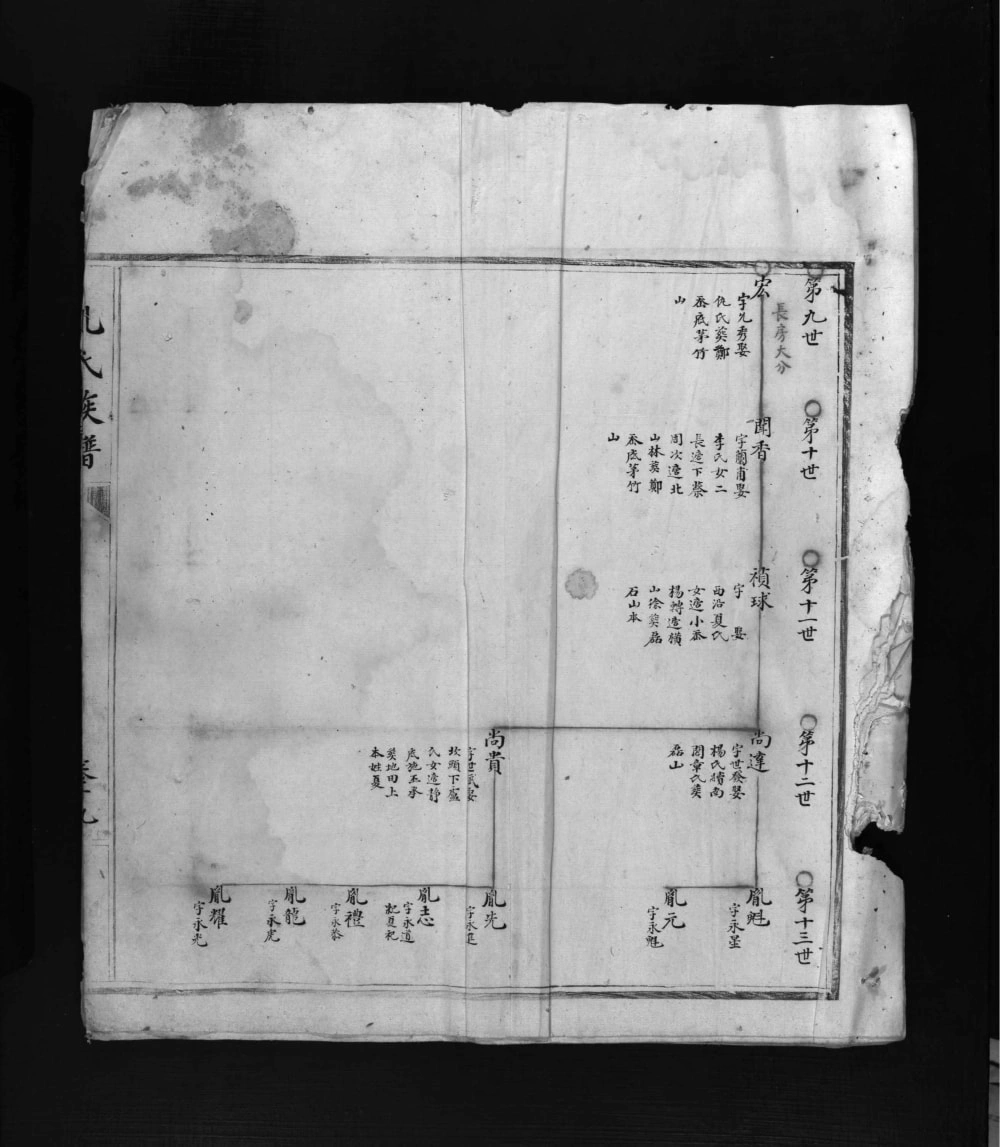 第九世
長房大分
宏
字允秀娶
仇氏葬鄭
岙底茅竹
山
第十世
聞香
字蘭甫娶
李氏女二
長適下蔡
周次適北
山林葬鄭
岙底茅竹
山
第十一世
禎球
字 娶
西沿夏氏
女適小岙
楊轉適横
山徐葬磊
石山本
第十二世
尚達
字世發娶
楊氏續南
閣章氏葬
磊山
尚貴
字世 娶
坎頭下盧
氏女適靜
底施玉承
葬地田上
本姓夏
第十三世
胤魁
字永星
胤元
字永魁
胤光
字永
胤志
字永道
祀夏祀
胤禮
字永恭
胤龍
字永虎
胤耀
字永光
氏族譜